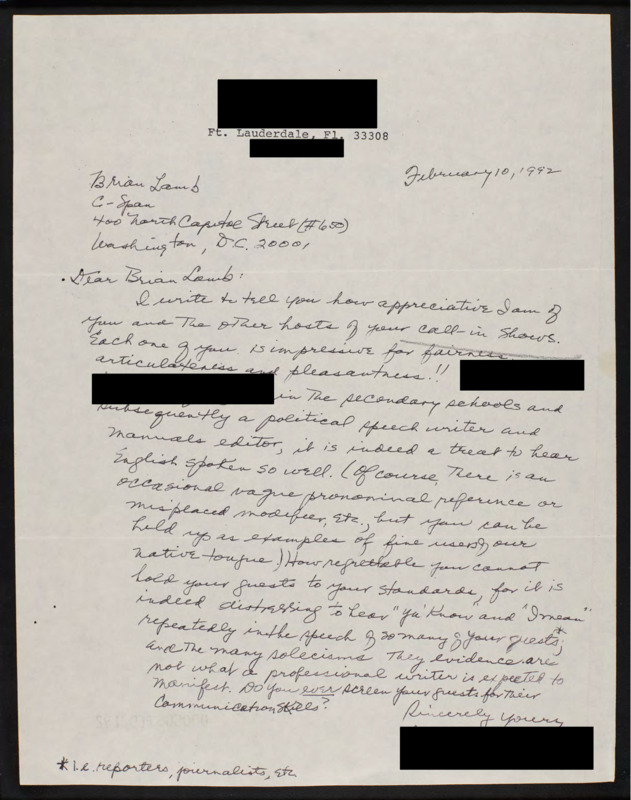 Ft. Lauderdale, Fl. 33308
February 10, 1992
Brian Lamb
C-Span
400 North Capitol Street (#650)
Washington, D.C. 20001
Dear Brian Lamb:
I write to tell you how appreciative I am of
you and the other hosts of your call-in shows.
Each one of you is impressive for fairness,
articulateness and pleasantness!!
in the secondary schools and
subsequently a political speech writer and
manuals editor, it is indeed a treat to hear
English spoken so well. (Of course, there is an
occasional vague pronominal reference or
misplaced modifier, etc., but you can be
held up as examples of fine users of our
native tongue.) How regrettable you cannot
hold your guests to your standards, for it is
indeed distressing to hear "ya' know" and "I mean"
repeatedly in the speech of so many of your guests*,
and the many solecisms they evidence are
not what a professional writer is expected to
manifest. Do you ever screen your guests for their
communication skills?
Sincerely yours,
* i.e. reporters, journalists, etc.